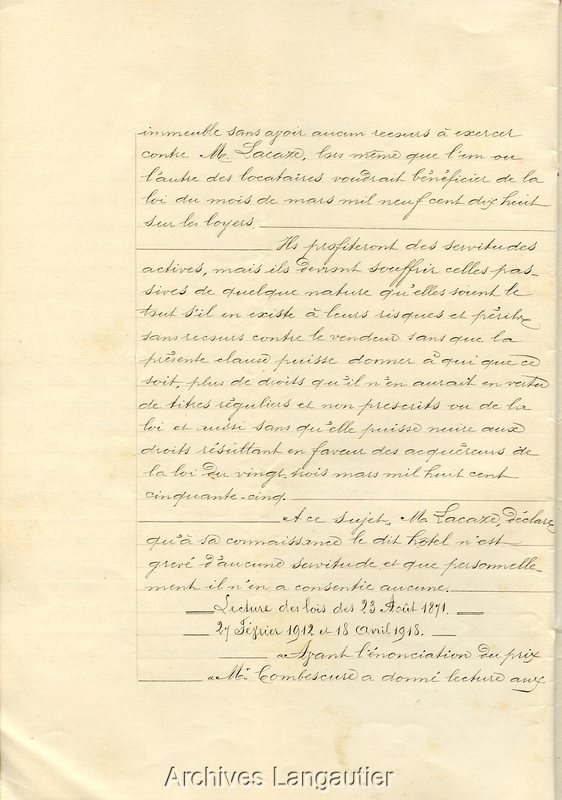 immeuble sans avoir aucun recours à exercer
contre M. Lacaze, lors même que l'un ou
l'autre des locataires voudrait bénéficier de la
loi du mois de mars mil neuf cent dix huit
sur les loyers.
Ils profiteront des servitudes
actives, mais ils devront souffrir celles pas-
sives de quelque nature qu'elles soient le
tout s'il en existe à leurs risques et périls
sans recours contre le vendeur sans que la
présente clause puisse donner à qui que ce
soit, plus de droits qu'il n'en aurait en vertu
de titres réguliers et non prescrits ou de la
loi et aussi sans qu'elle puisse nuire aux
droits résultant en faveur des acquéreurs de
la loi du vingt trois mars mil huit cent
cinquante-cinq.
A ce sujet, M. Lacaze, déclare
qu'à sa connaissance le dit hôtel n'est
grevé d'aucune servitude et que personnelle-
ment il n'en a consentie aucune.
Lecture des lois des 23 Août 1871.
27 Février 1912 et 18 avril 1918.
Avant l'énonciation du prix
Me Combescure a donné lecture aux
Archives Langautier